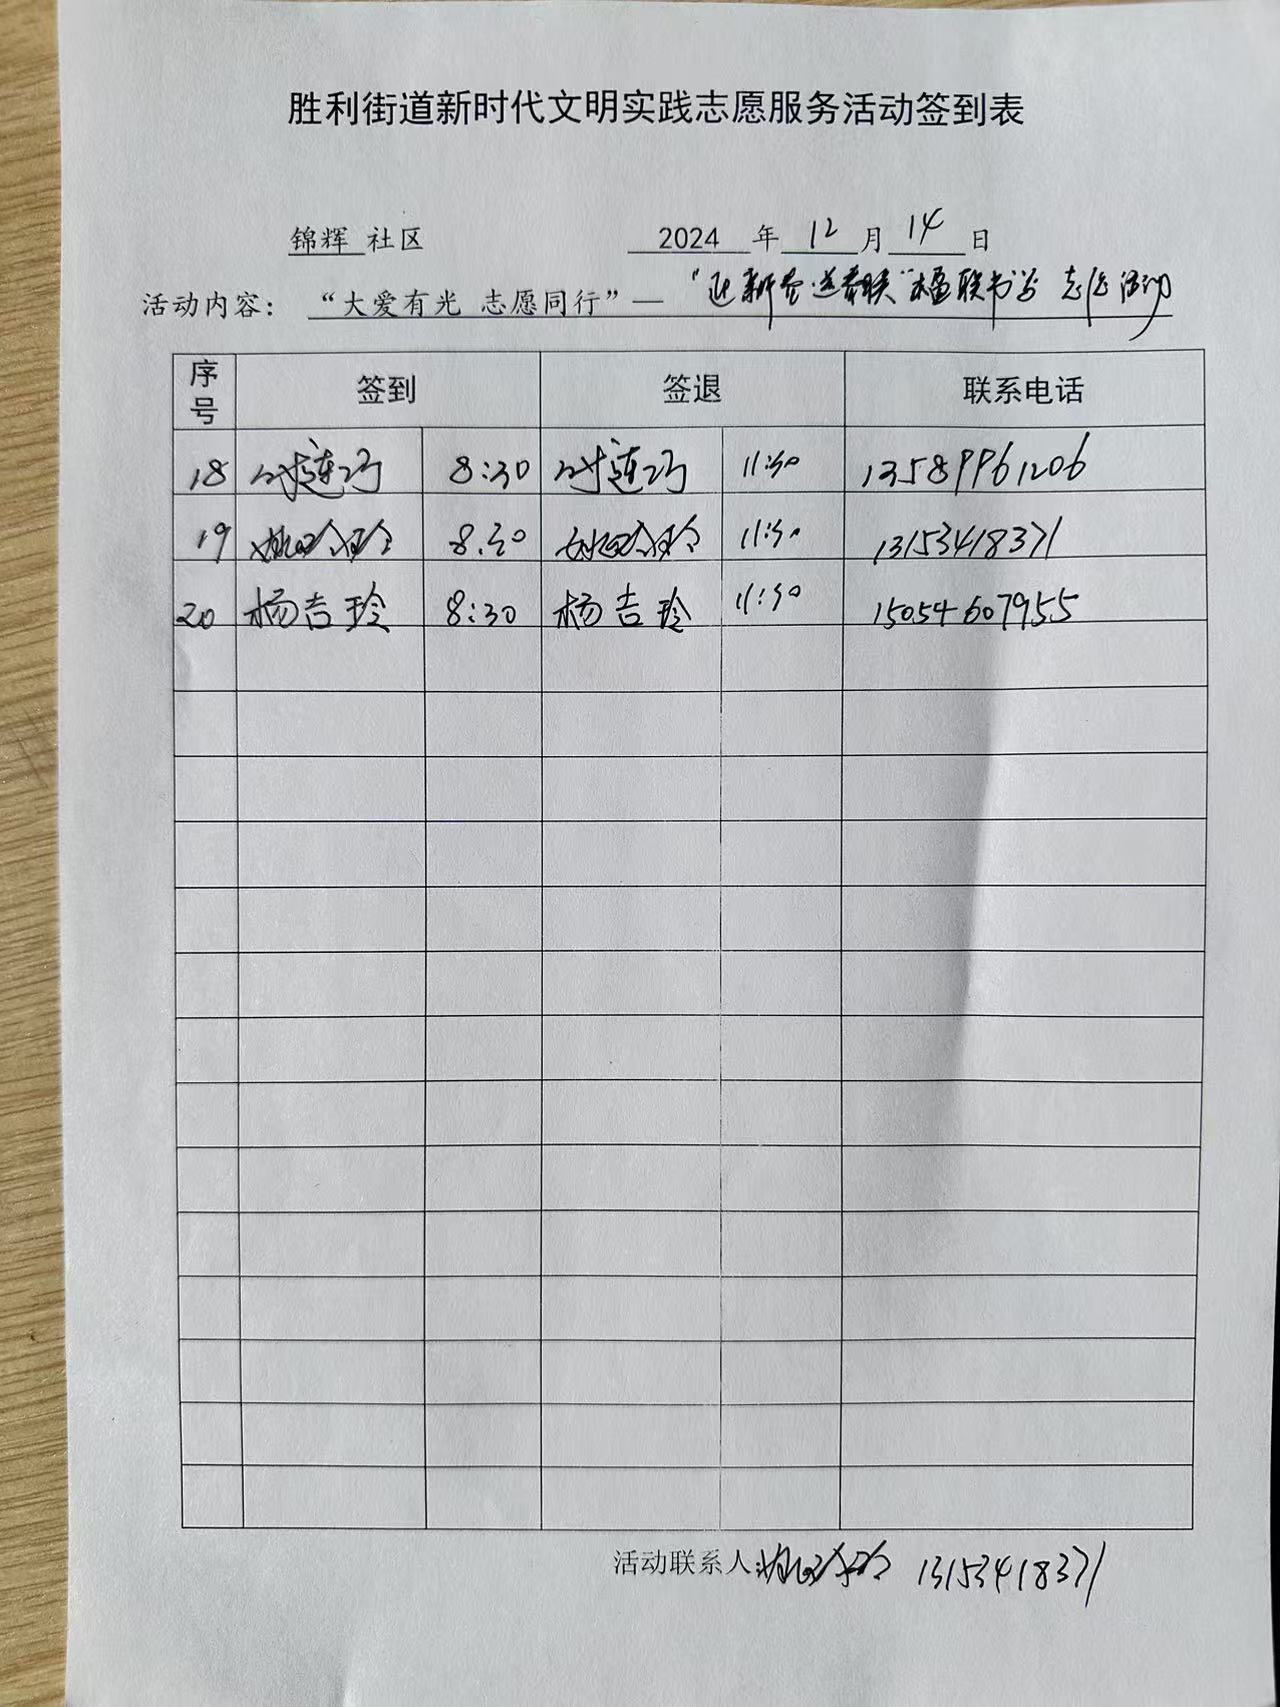 胜利街道新时代文明实践志愿服务活动签到表
锦辉 社区 2024 年 12 月 14 日
活动内容：“大爱有光 志愿同行”— “迎新春·送春联”楹联书写 志愿活动
序号 签到 签退 联系电话
18 8:30 11:30 13589961206
19 8:30 11:30 13153418371
20 杨吉玲 8:30 杨吉玲 11:30 15054607955
活动联系人: 13153418371